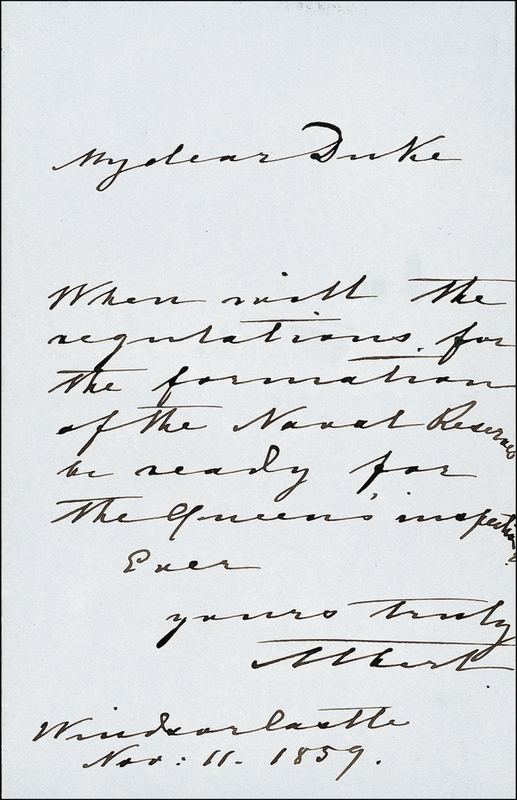 My dear Duke
When will the
regulations for
the formation
of the Naval Reserves
be ready for
the Queen's inspection?
Ever
yours truly
Albert
Windsor Castle
Nov: 11. 1859.